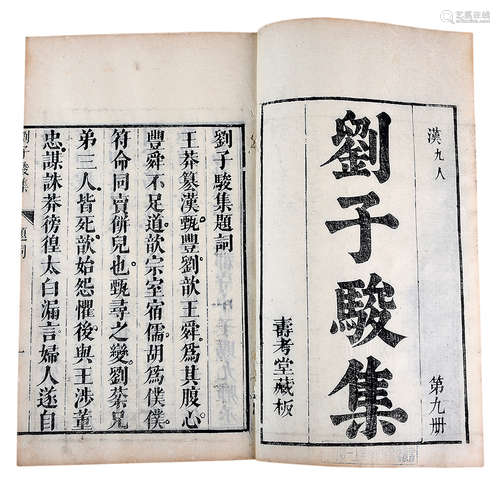 漢九人
劉子駿集
第九册
壽考堂藏板
劉子駿集題詞
王莽篡漢甄豐劉歆王舜爲其腹心
豐舜不足道歆宗室宿儒胡爲僕僕
符命同賣餅兒也甄尋之變劉棻兄
弟三人皆死歆始怨懼後與王涉董
忠謀誅莽徬徨太白漏言婦人遂自
劉子駿集
題詞
一